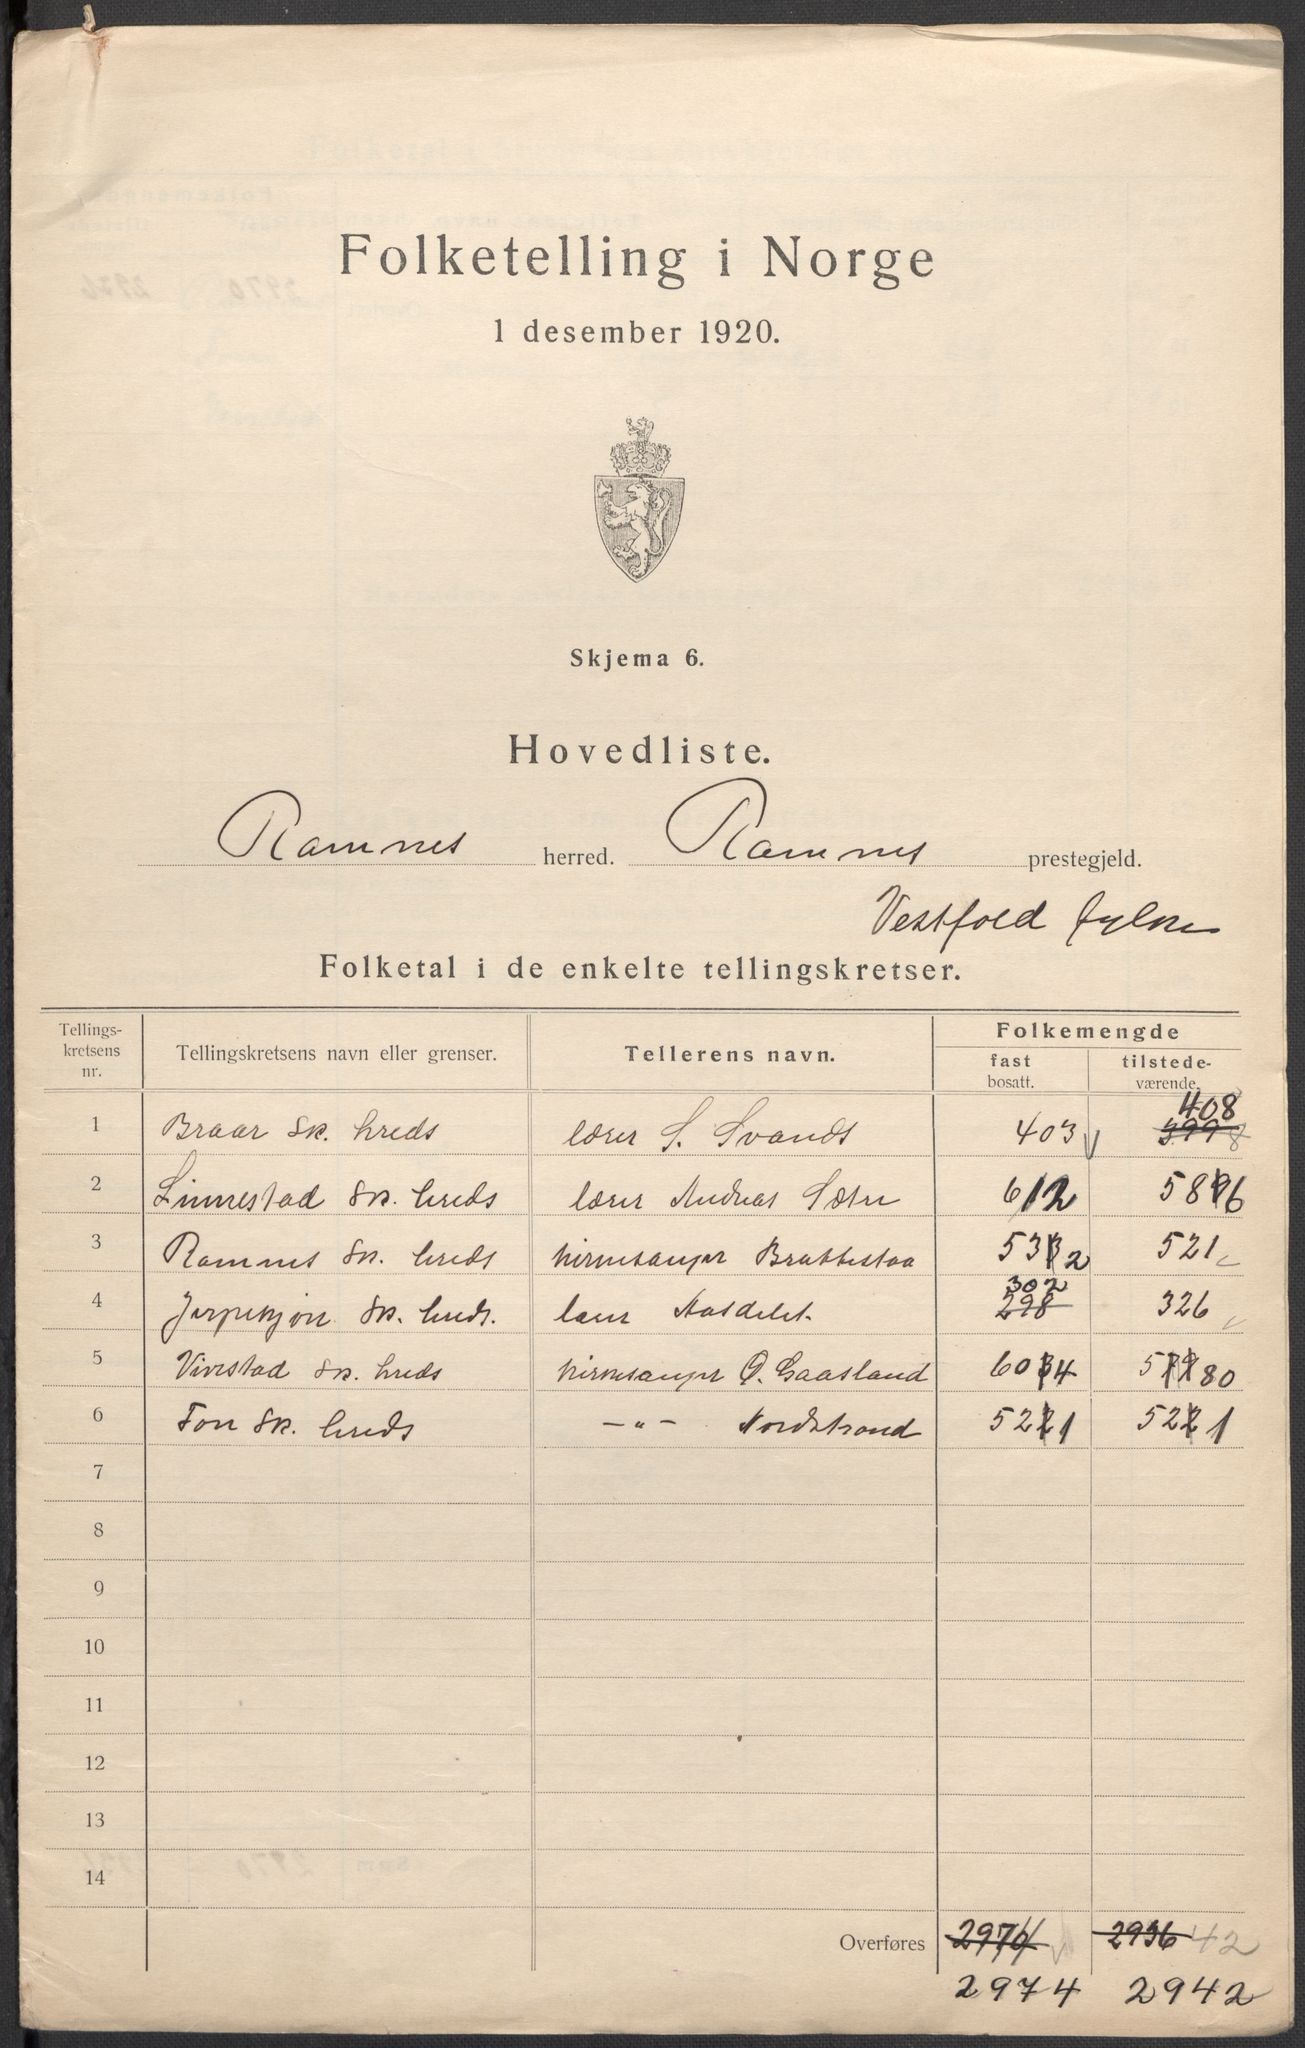 Folketelling i Norge
1 desember 1920.
Skjema 6.
Hovedliste.
Ramnes herred. Ramnes prestegjeld.
Vestfold fylke
Folketal i de enkelte tellingskretser.
Tellings-
kretsens
nr.
Tellingskretsens navn eller grenser.
Tellerens navn.
Folkemengde
fast
bosatt.
tilstede-
værende.
408
1 Braar sk. kreds lærer S. Svands 403
2 Linnestad sk. kreds lærer Andreas Sætre 612 586
3 Ramnes sk. kreds kirkesanger Brattestaa 532 521
302
4 sk. kreds. lærer 298 326
5 Vivestad sk. kreds kirkesanger O. Gaasland 604 580
6 Fon sk. kreds —"— Nordstrand 521 521
7
8
9
10
11
12
13
14
Overføres 2970 2936 42
2974 2942